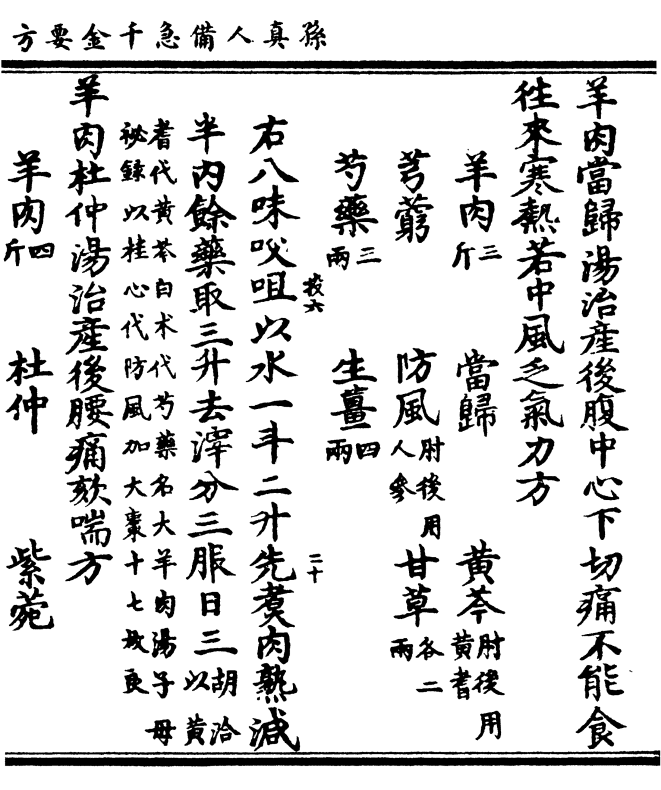 孫真人備急千金要方
羊肉當歸湯治産後腹中心下切痛不能食
徃來寒熱若中風乏氣力方
羊肉三斤 當歸 黃芩肘後用黃耆
芎藭 防風肘後用人參 甘草各二兩
芍藥三兩 生薑四兩
右八味㕮咀以水一斗二升先煮肉熟減
半内餘藥取三升去滓分三服日三胡洽以黃
耆代黃芩白术代芍藥名大羊肉湯子母
祕錄以桂心代防風加大棗十七枚
羊肉杜仲湯治産後腰痛欬喘方
羊肉四斤 杜仲 紫菀
技六
二十